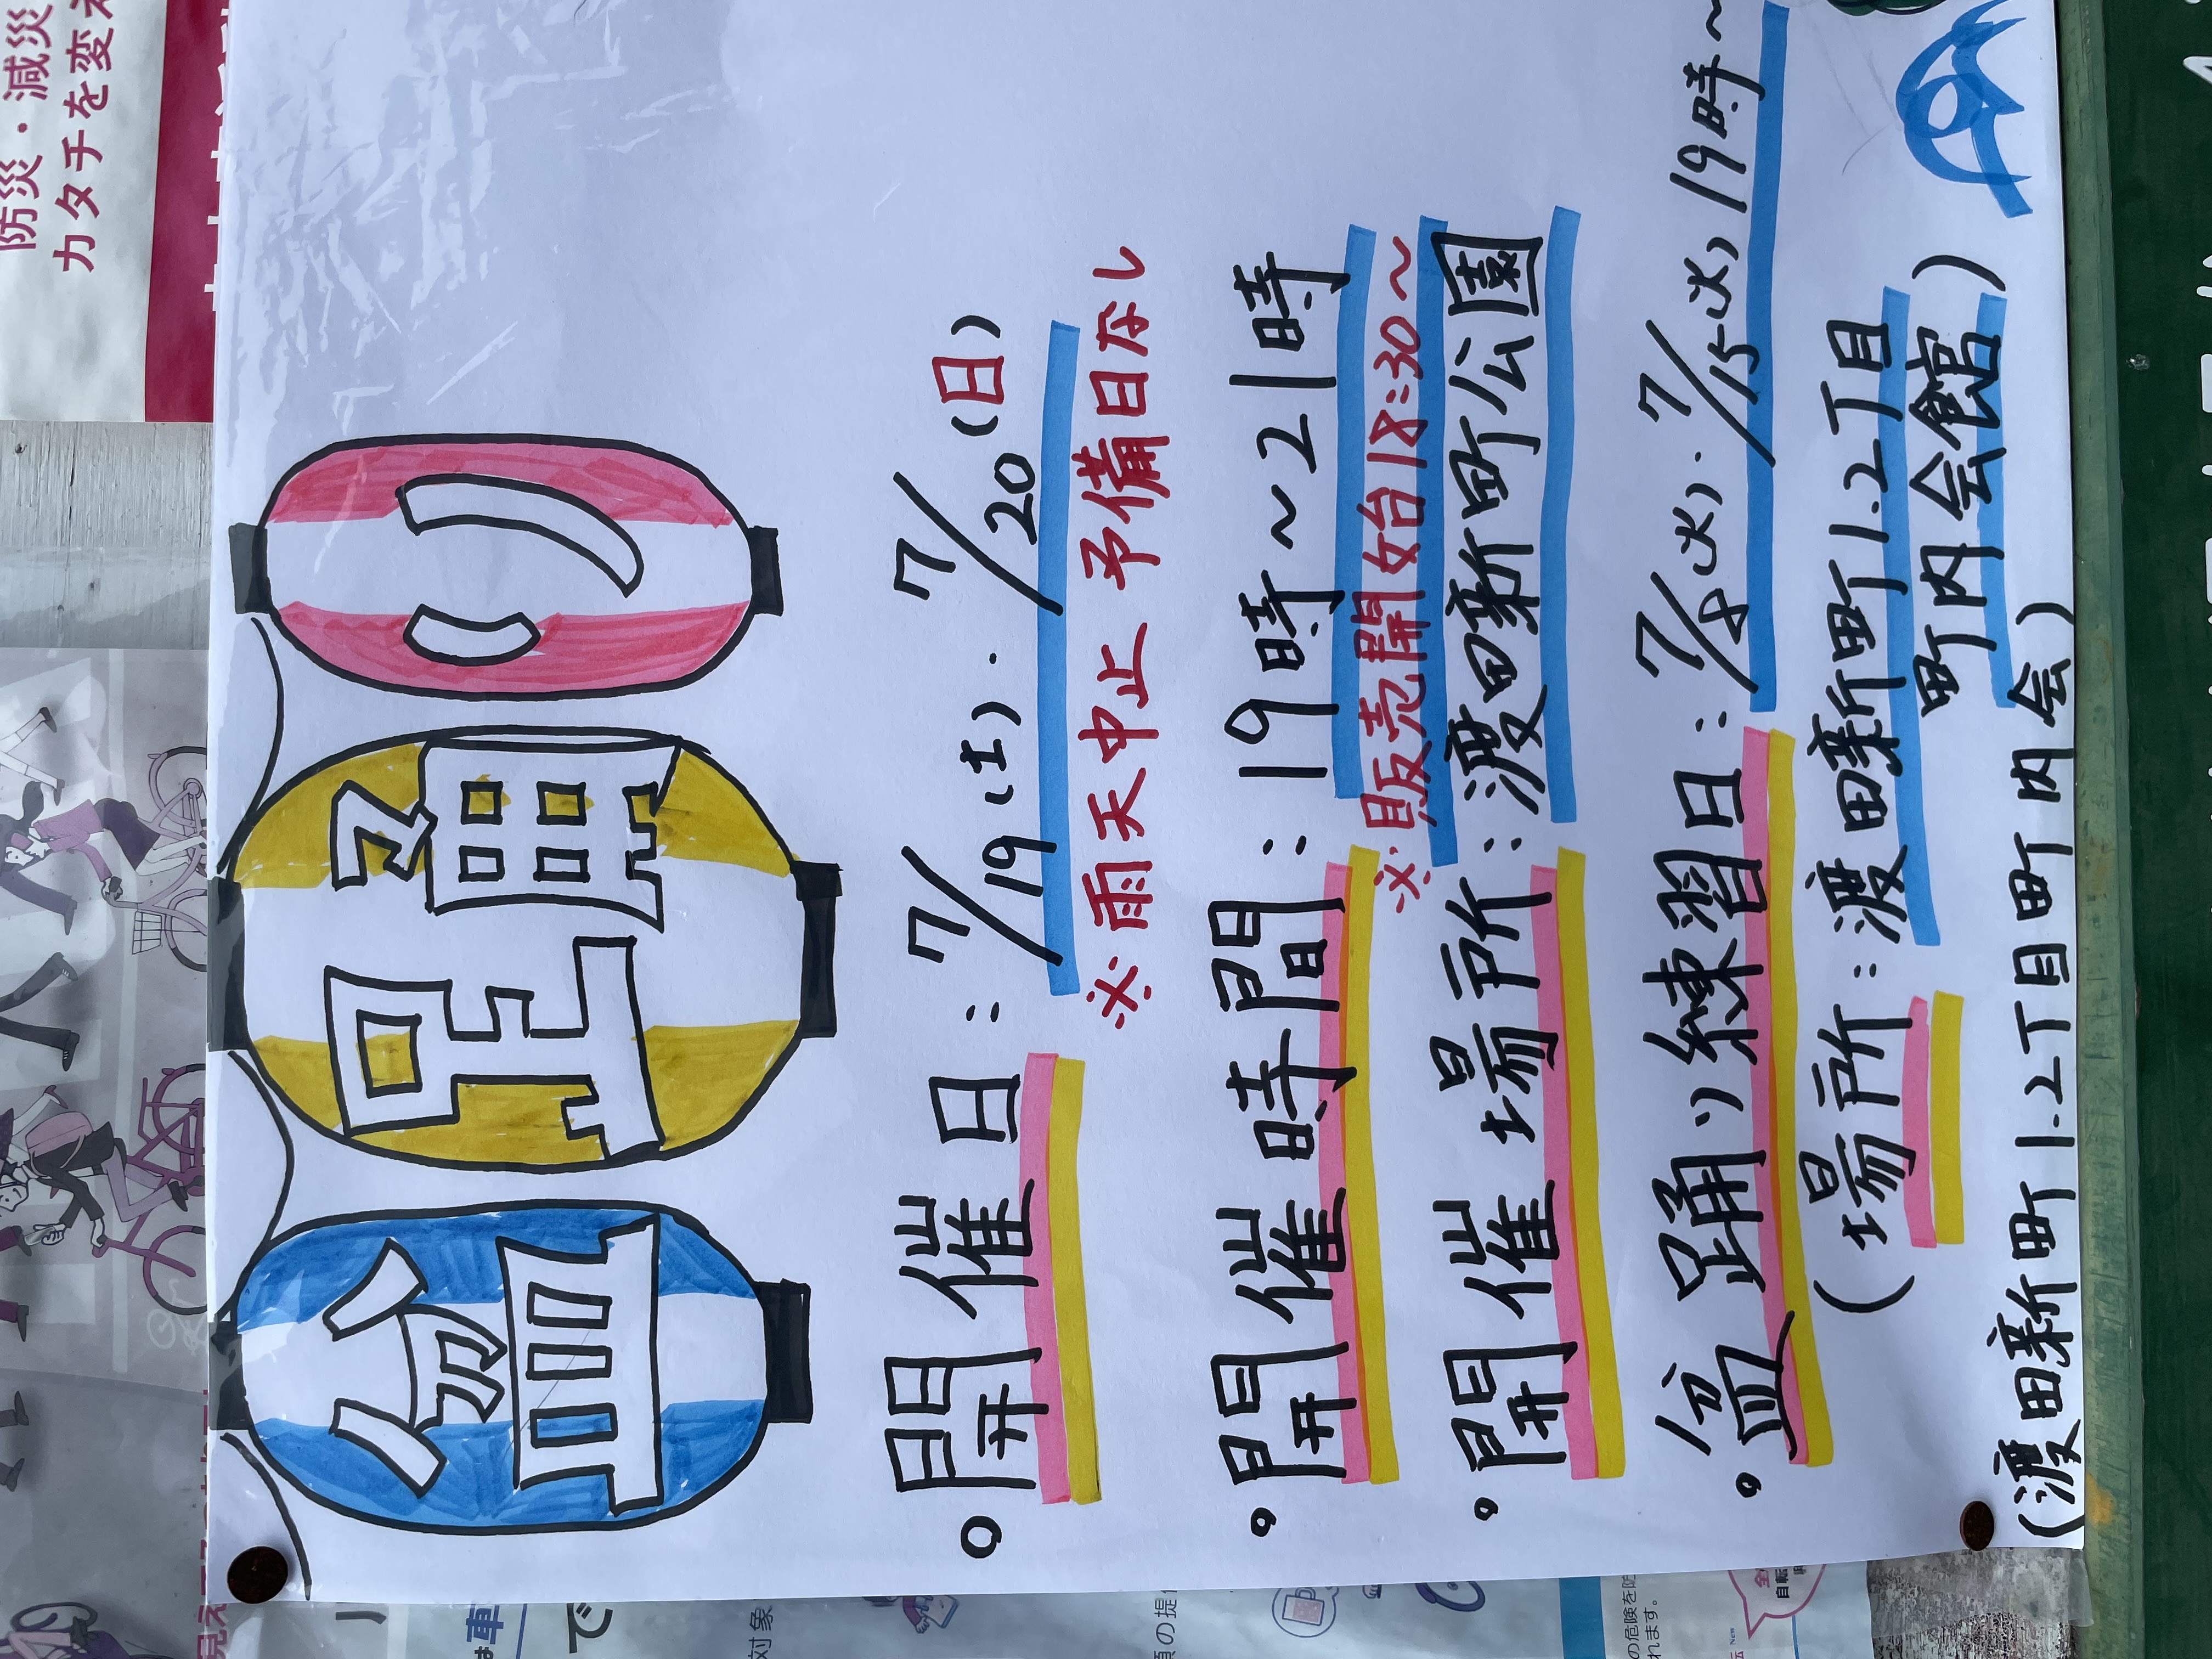 盆踊り
。開催日：7/19(土)・7/20(日)
※雨天中止 予備日なし
。開催時間：19時～21時
※販売開始18:30～
。開催場所：渡田新町公園
。盆踊り練習日：7/8(火)・7/15(火)19時～
(場所：渡田新町1.2丁目
町内会館)
(渡田新町1.2丁目町内会)
防災・減災
カタチを変え
対象
の危険を防
れます。